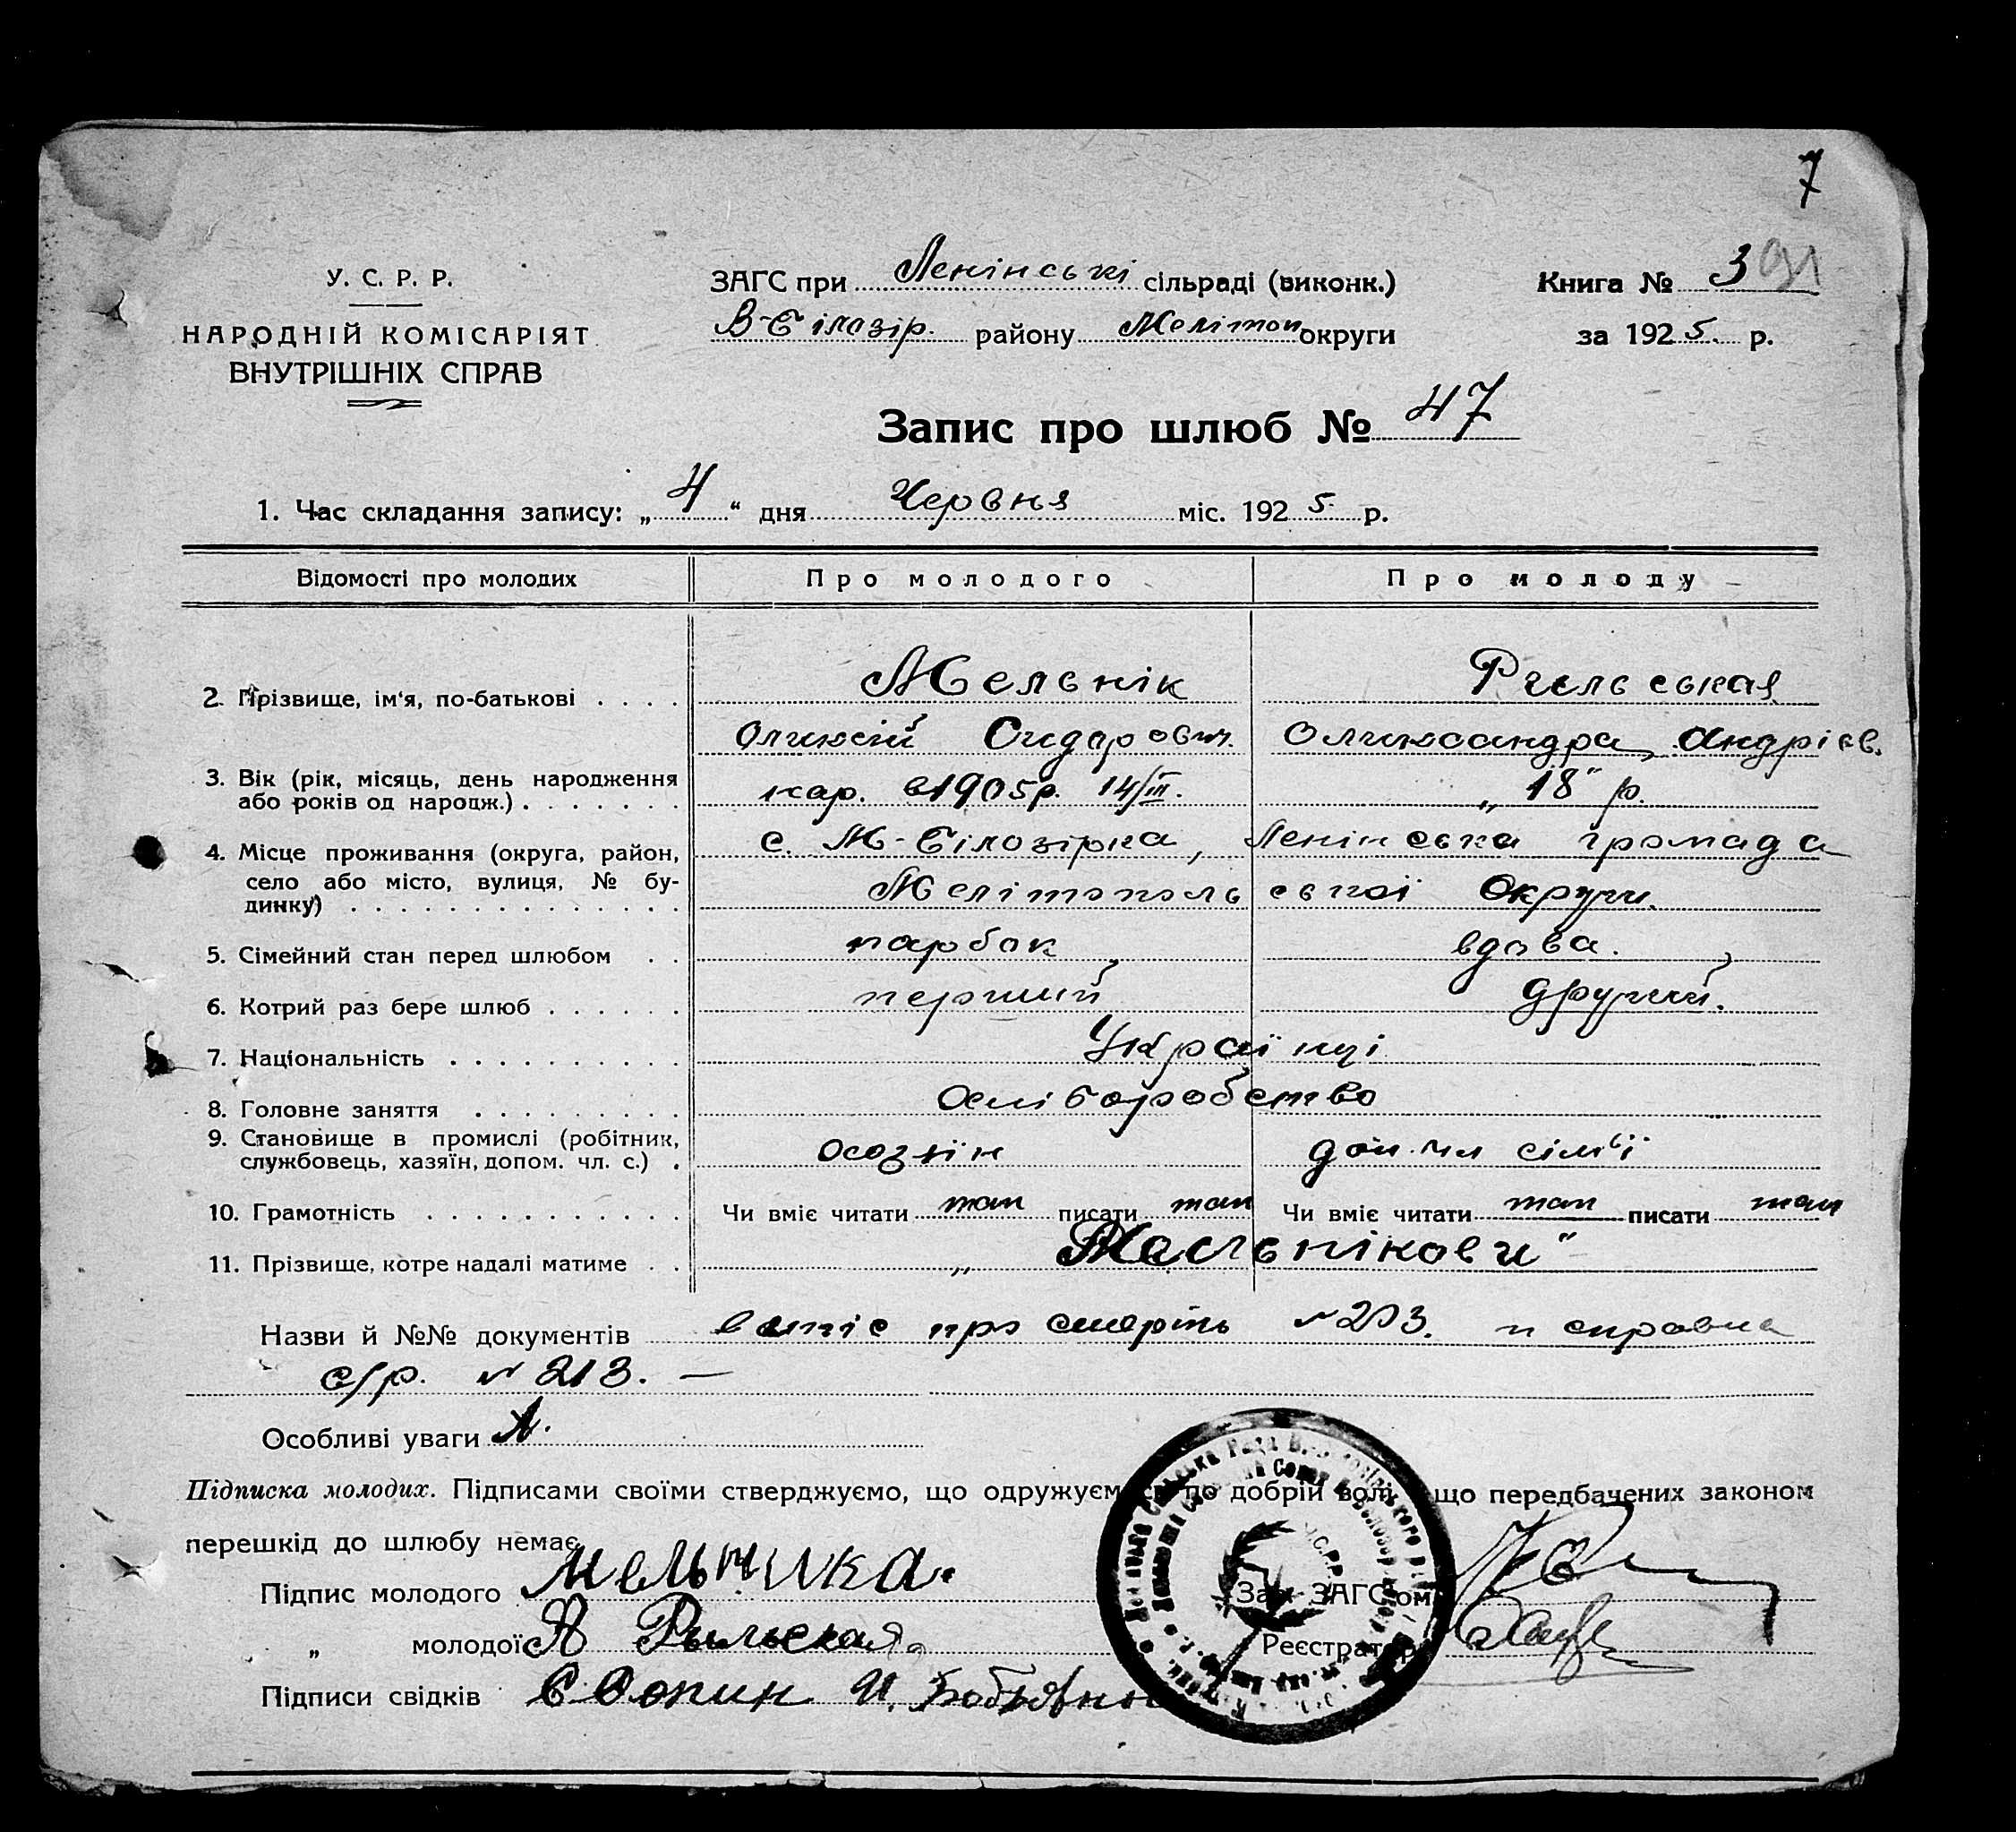 7
У. С. Р. Р.
НАРОДНІЙ КОМІСАРІЯТ
ВНУТРІШНІХ СПРАВ
ЗАГС при Ленінські сільраді (виконк.)
В-Білозір. району Меліто​п округи
Книга № 3
за 1925. р.
Запис про шлюб № 47
1. Час складання запису: „4“ дня Червня міс. 1925. р.
Відомості про молодих Про молодого Про молоду
2. Прізвище, ім'я, по-батькові Мельнік Рильськая
Олик​сій Сидарович. Оликсандра Андрієв.
3. Вік (рік, місяць, день народження або років од народж.) нар. в 1905р. 14/III. „18" р.
4. Місце проживання (округа, район, село або місто, вулиця, № будинку) с. М-Білозірка, Ленінська громада
Мелітопольської Округи.
5. Сімейний стан перед шлюбом парбок вдова.
6. Котрий раз бере шлюб перший другий.
7. Національність Українці
8. Головне заняття
9. Становище в промислі (робітник, службовець, хазяїн, допом. чл. с.) доп. чл сім'ї
10. Грамотність Чи вміє читати так писати так Чи вміє читати так писати так
11. Прізвище, котре надалі матиме „Мельнікови"
Назви й №№ документів про смерть №203. и справка
с/р. № 213. —
Особливі уваги
Підписка молодих. Підписами своїми стверджуємо, що одружуємося по добрій волі що передбачених законом
перешкід до шлюбу немає
Підпис молодого мельника.
Зав. ЗАГС'ом
„ молодої А Рыльская
Реєстратор
Підписи свідків